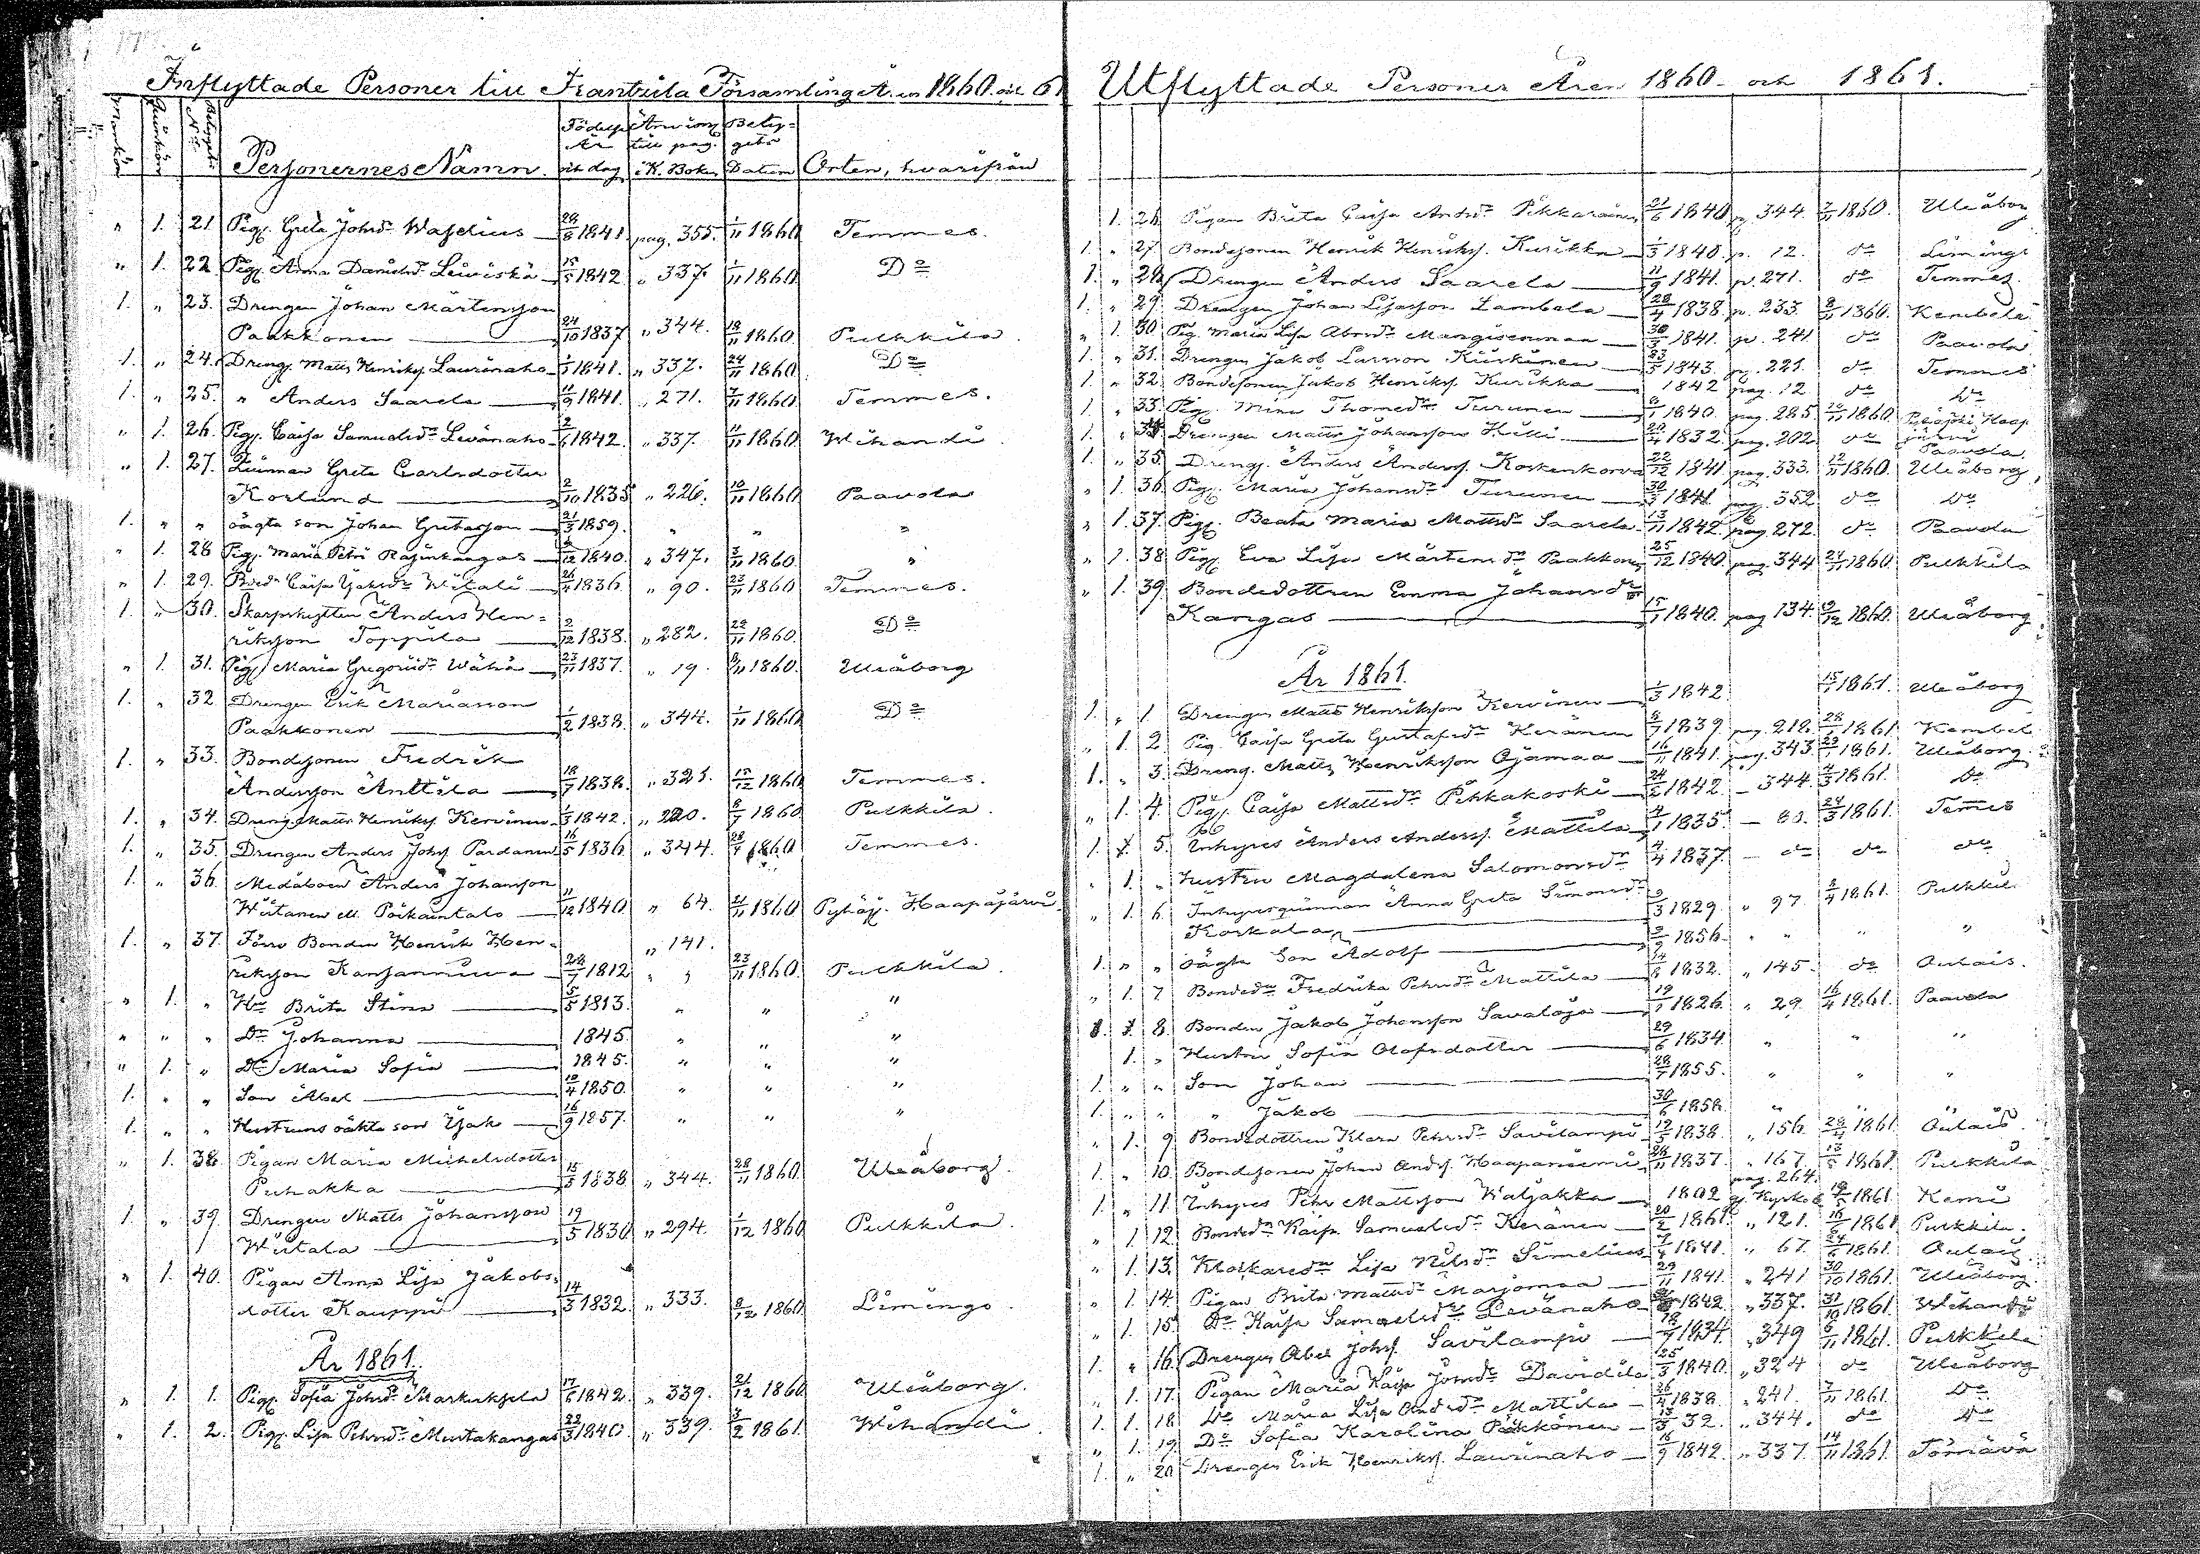 Inflyttade Personer till Frantsila Församling År 1860 och 61
Mankön Qvinkön Betygets No Personernes Namn. Födelse År och dag Anvisng till pag. i K. Boken Bety-gets Datum Orten, hvarifrån
„ 1. 21. Pig. Greta Johsdr Waselius 28/8 1841. pag. 355. 1/11 1860 Temmes.
„ 1. 22. Pig. Anna Danielsdr Leiviskä 15/5 1842 „ 337. 1/11 1860 Do
1. „ 23. Drengen Johan Mårtensson
Paakkonen 24/10 1837 „ 344. 18/11 1860. Pulkkila.
1. „ 24. Dreng. Matts Henriksf. Laurinaho 1/5 1841. „ 337. 24/11 1860. Do
1. „ 25. „ Anders Saarela 11/9 1841. „ 271. 7/11 1860 Temmes.
„ 1. 26. Pig. Caisa Samuelsdr Levänaho 2/6 1842. „ 337. 11/11 1860 Wihandi.
„ 1. 27. Qvinnan Greta Carlsdotter
Korlund 2/10 1835 „ 226. 10/11 1860 Paavola
1. „ „ oägta son Johan Gretasson 21/3 1859. „ „ „
„ 1. 28 Pig. Maria Petri Rajinkangas /12 1840. „ 347. 3/11 1860. „
„ 1. 29. Caisa Isaksdr Witali 26/4 1836 „ 90. 23/11 1860 Temmes.
1. „ 30. Skarpskytten Anders Hen-
riksson Toppila 2/12 1838. „ 282. 22/11 1860. Do
„ 1. 31. Pig. Maria Gregoriidr Wähä 23/11 1837. „ 19. 8/11 1860. Uleåborg
1. „ 32 Drengen Erik Mariasson
Paakkonen 1/2 1838. „ 344. 1/11 1860 Do
1. „ 33. Bondsonen Fredrik
Andersson Anttila 18/7 1838. „ 321. 15/12 1860 Temmes.
1. „ 34. Dreng. Matts Henriksf. Kervinen 1/3 1842. „ 220. 8/7 1860 Pulkkila.
1. „ 35. Drengen Anders Johsf. Pardanen 16/5 1836. „ 344. 1860 Temmes.
1. „ 36. Anders Johansson
Wiitanen 11/12 1840 „ 64. 21/11 1860 Pyhäj. Haapajärvi.
1. „ 37. Förre Bonden Henrik Hen- „ 141.
riksson Kansanniva 28/7 1812 „ „ 23/11 1860. Pulkkila.
„ 1. „ Hu Brita Stina 5/5 1813. „ „ „
„ „ „ Dr Johanna 1845. „ „ „
„ 1. „ Dr Maria Sofia 1845. „ „ „
1. „ „ Son Abel 10/4 1850. „ „ „
1. „ „ Hustruns oäkta son Isak 16/9 1857. „ „ „
„ 1. 38. Pigan Maria Michelsdotter
Puhakka 15/5 1838. „ 344. 28/11 1860. Uleåborg.
1. „ 39. Drengen Matts Johansson
Wiitala 19/5 1830 „ 294. 1/12 1860 Pulkkila.
„ 1. 40. Pigan Anna Lisa Jakobs-
dotter Kauppi 14/3 1832. „ 333. 8/12 1860. Limingo.
År 1861.
„ 1. 1. Pig. Sofia Johsdr Markuksela 17/6 1842. „ 339. 21/12 1860 Uleåborg.
„ 1. 2. Pig. Lisa Pehrsdr Mustakangas 23/3 1840. „ 339. /2 1861. Wihandi.
Utflyttade Personer Åren 1860 och 1861.
1. 26. Pigan Brita Caisa Andsdr Pekkarainen 21/6 1840 p. 344. 7/11 1860. Uleåborg
1. „ 27. Bondesonen Henrik Henriksf. Kurikka 1/3 1840. p. 12. do Limingo
1. „ 28. Drengen Anders Saarela 11/9 1841. p. 271. do Temmes.
1. „ 29. Drengen Johan Lambela 28/4 1838. p. 233. 8/11 1860. Kembele
„ 1. 30. Pig. Maria Lisa Abrsdr 30/3 1841. p. 241. do Paavola
1. „ 31. Drengen Jakob Larsson 23/5 1843. p. 221. do Temmes
1. „ 32. Bondesonen Jakob Henriksf. Kurikka 1842 pag. 12 do Do
1. „ 33. Pig. Mina Thomedr Turunen 1840. pag. 285 1860. Haap-
järvi
1. „ 34. Drengen Matts Johansson 1832. pag. 202. do Paavola
1. „ 35. Dreng. Anders Andersf. Koskenkorva 22/12 1841. pag. 333. 12/11 1860. Uleåborg
„ 1. 36. Pig. Maria Johansdr Turunen 30/3 1841. pag. 352 do Do
„ 1. 37. Pig. Beata Maria Mattsdr Saarela 13/11 1842. pag. 272. do Paavola
„ 1. 38 Pig. Eva Lisa Mårtensdr Paakkonen 25/12 1840. pag. 344 24/11 1860. Pulkkila
„ 1. 39. Bondedottren Emma Johansdr
Kangas 15/1 1840. pag. 134. 9/12 1860. Uleåborg.
År 1861.
1. „ 1. Drengen Matts Henriksson Kervinen 1/3 1842 15/1 1861. Uleåborg
„ 1. 2. Pig. Caisa Greta Gustafsdr Keränen 8/7 1839. pag. 218. 28/1 1861. Kembele
1. „ 3. Dreng. Matts Henriksson Ojamaa 16/11 1841. pag. 343 1861. Uleåborg.
„ 1. 4. Pig. Caisa Mattsdr Pekkakoski 24/2 1842. 344. 4/3 1861. Do
1. 5. Inhyses Anders Andersf. Mattila 1835. 80. 24/3 1861. Temmes
„ 1. „ Hustru Magdalena Salomonsdr 4/4 1837. do do do
„ 1. 6. Inhyseqvinnan Anna Greta Simonsdr
Koskela 9/3 1829. „ 97 2/4 1861. Pulkkila
1. „ „ oägta Son Adolf 1856. „ „ „
„ 1. 7. Bondedr Fredrika Pehrsdr Mattila 14/8 1832. „ 145. do Oulais.
8. Bonden Jakob Johansson Savaloja 19/1 1826. „ 29. 16/4 1861. Paavola
1. „ Hustru Sofia Olofsdotter 29/6 1834 „ „ „
1. „ „ Son Johan 28/7 1855. „ „ „
1. „ „ „ Jakob 30/6 1858. „ „ „
„ 1. 9. Bondedottren Klara Pehrsdr Savilampi 19/5 1838. „ 156. 28/4 1861. Oulais.
1. „ 10. Bondesonen Johan Andsf. Haapaniemi 26/11 1837. „ 167. 13/5 1861. Pulkkila
1. „ 11. Inhyses Pehr Mattsson Waljakka 1802 pag. 264. 1861. Kemi
„ 1. 12. Bondedr Kaisa Samuelsdr Keränen 20/2 1861. „ 121. 16/6 1861. Pulkkila.
„ 1. 13. Klockaredr Lisa Nilsdr Simelius 1841. „ 67. 24/6 1861. Oulais.
„ 1. 14. Pigan Brita Mattsdr Marjomaa 29/11 1841. „ 241 30/10 1861. Uleåborg.
„ 1. 15. Do Kaisa Samuelsdr Levänaho 1842. „ 337. 31/10 1861. Wihandi
1. „ 16. Drengen Abel Johsf. Savilampi 18/7 1834. „ 349 6/11 1861. Pulkkila
„ 1. 17. Pigan Maria Kaisa Johsdr Davidila 25/3 1840. „ 324 do Uleåborg
1. 18. Do Maria Lisa Andsdr Mattila 26/4 1838. „ 241. 7/11 1861. Do
„ 1. 19. Do Sofia Karolina Päkkönen 13/3 32. „ 344. do Do
1. „ 20. Drengen Erik Henriksf. Laurinaho 16/9 1842. „ 337. 14/11 1861. Törnävä